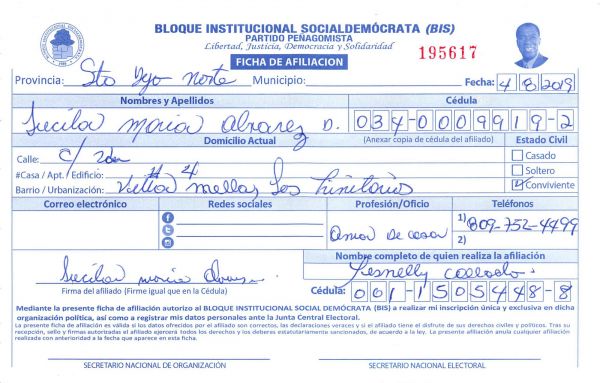 BLOQUE INSTITUCIONAL SOCIALDEMÓCRATA (BIS)
PARTIDO PEÑAGOMISTA
Libertad, Justicia, Democracia y Solidaridad
FICHA DE AFILIACION
195617
Provincia: Sto Dgo norte Municipio: Fecha: 4/8/2019
Nombres y Apellidos Cédula
Lucila maria Alvarez D. 034-0009919-2
Domicilio Actual (Anexar copia de cédula del afiliado) Estado Civil
Calle: C/ 2da Casado
#Casa / Apt. / Edificio: # 4 Soltero
Barrio / Urbanización: Villa mella Los Trinitarios Conviviente
Correo electrónico Redes sociales Profesión/Oficio Teléfonos
Ama De casa 1) 809-752-4499
2)
Nombre completo de quien realiza la afiliación
Lucila maria Collado
Firma del afiliado (Firme igual que en la Cédula) Cédula: 001-1505448-8
Mediante la presente ficha de afiliación autorizo al BLOQUE INSTITUCIONAL SOCIAL DEMÓCRATA (BIS) a realizar mi inscripción única y exclusiva en dicha
organización política, así como a registrar mis datos personales ante la Junta Central Electoral.
La presente ficha de afiliación es válida si los datos ofrecidos por el afiliado son correctos, las declaraciones veraces y si el afiliado tiene el disfrute de sus derechos civiles y políticos. Tras su
recepción, sello y firmas autorizadas el afiliado ejercerá todos los derechos y los deberes estatutariamente sancionados, de acuerdo a la ley. La presente afiliación anula cualquier afiliación
realizada con anterioridad a la fecha que aparece en esta ficha.
SECRETARIO NACIONAL DE ORGANIZACIÓN SECRETARIO NACIONAL ELECTORAL